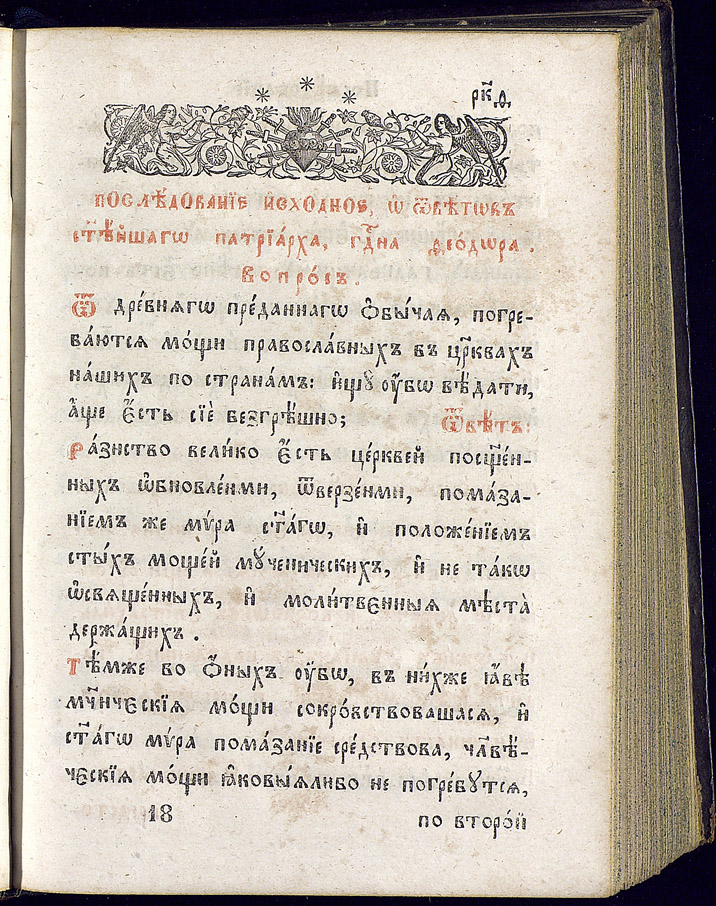 рк҃ѳ.
послѣ́дованїе и҆схо́дное, ѡ҆ ѿвѣ́тѡвъ
ст҃ѣ́йшагѡ патрїа́рха, гд҇на ѳео́дѡра.
Вопро́съ.
Ѿ дре́внягѡ пре́даннагѡ ѻ҆бы́чая, погре-
ва́ются мо́щи правосла́вныхъ въ цр҃квахъ
на́шихъ по страна́мъ: и҆щꙋ̀ ᲂу҆́бѡ вѣ́дати,
а҆́ще є҆́сть сїѐ безгрѣ́шно;
Ѿвѣ́тъ:
Ра́знство вели́ко є҆́сть це́рквей посще́н-
ныхъ ѡ҆бновле́нми, ѿверзе́нми, пома́за-
нїемъ же мѵ́ра ст҃а́гѡ, и҆ положе́нїемъ
сты́хъ моще́й мꙋ́ченическихъ, и҆ не та́кѡ
ѡ҆свяще́нныхъ, и҆ моли́твенныя мѣ́ста̀
держа́щихъ.
Тѣ́мже во ѻ҆́ныхъ ᲂу҆́бѡ, въ ни́хже ꙗ҆́вѣ
мч҃нческїя мо́щи сокро́вствовашася, и҆
ст҃а́гѡ мѵ́ра пома́занїе сре́дствова, чл҃вѣ́-
ческїя мо́щи ꙗ҆ковы́ялибо не погре́бꙋтся,
18
по второ́й